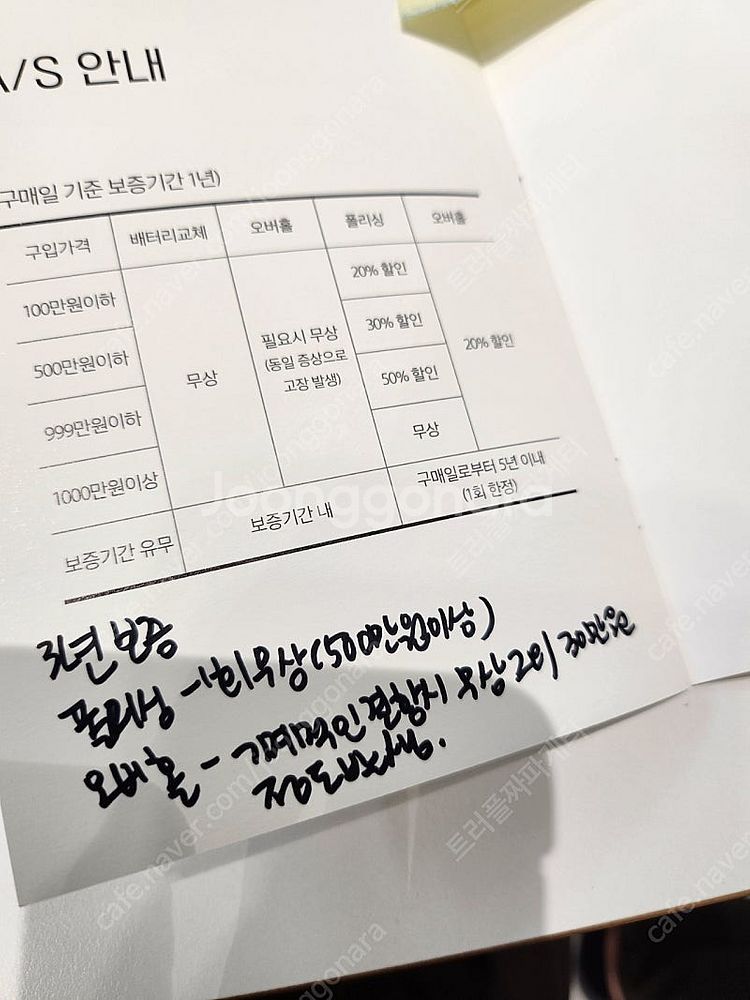 A/S 안내
구매일 기준 보증기간 1년)
구입가격 배터리교체 오버홀 폴리싱 오버홀
100만원이하 20% 할인
500만원이하 30% 할인
999만원이하 50% 할인
1000만원이상 무상
무상
필요시 무상
(동일 증상으로
고장 발생)
20% 할인
보증기간 유무 보증기간 내 구매일로부터 5년 이내
(1회 한정)
3년 보증
폴리싱 - 1회 무상 (500만원이상)
오버홀 - 기계적인 결함시 무상 그외 30만원
정도 발생.
Joonggonara
트러플짜파게티
cafe.naver.com/joonggonara